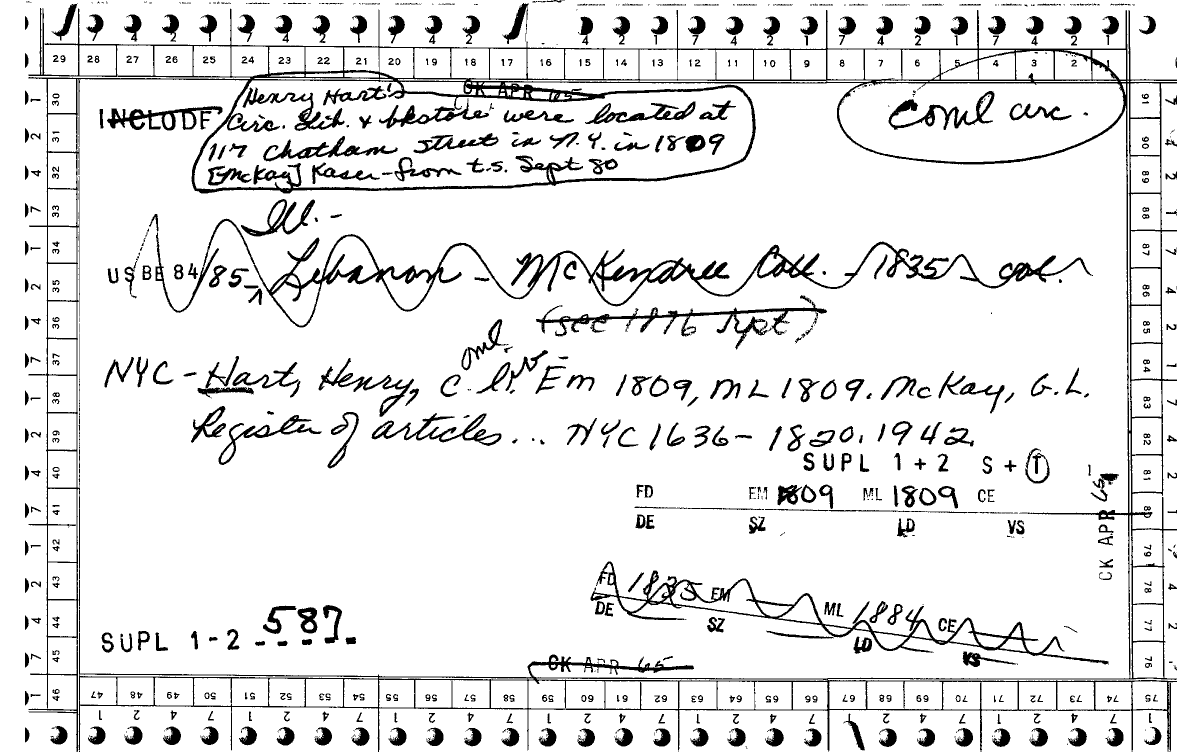 7 4 2 1 7 4 2 1 7 4 2 1 4 2 1 7 4 2 1 7 4 2 1
29 28 27 26 25 24 23 22 21 20 19 18 17 16 15 14 13 12 11 10 9 8 7 6 5 4 3 2 1
CK APR 65
INCLUDE
Henry Hart's
Circ. Lib. & bkstore were located at
117 Chatham street in N.Y. in 1809
[McKay] Kaser - from t.s. Sept 80
coml circ.
Ill. -
US BE 84/85 - Lebanon - McKendree Coll. - 1835 - col.
(see 1876 rpt)
coml.
NYC - Hart, Henry, c. lib. Em 1809, ML 1809. McKay, G.L.
Register of articles... NYC 1636 - 1820. 1942.
SUPL 1+2 S+T
FD EM 1809 ML 1809 CE
DE SZ LD VS
CK APR 65
FD 1835 EM ML 1884 CE
DE SZ LD VS
SUPL 1-2 587
CK APR 65
30 31 32 33 34 35 36 37 38 39 40 41 42 43 44 45 46
91 90 89 88 87 86 85 84 83 82 81 80 79 78 77 76 75
47 48 49 50 51 52 53 54 55 56 57 58 59 60 61 62 63 64 65 66 67 68 69 70 71 72 73 74 75
1 2 4 7 1 2 4 7 1 2 4 7 1 2 4 7 1 2 4 7 1 2 4 7 1